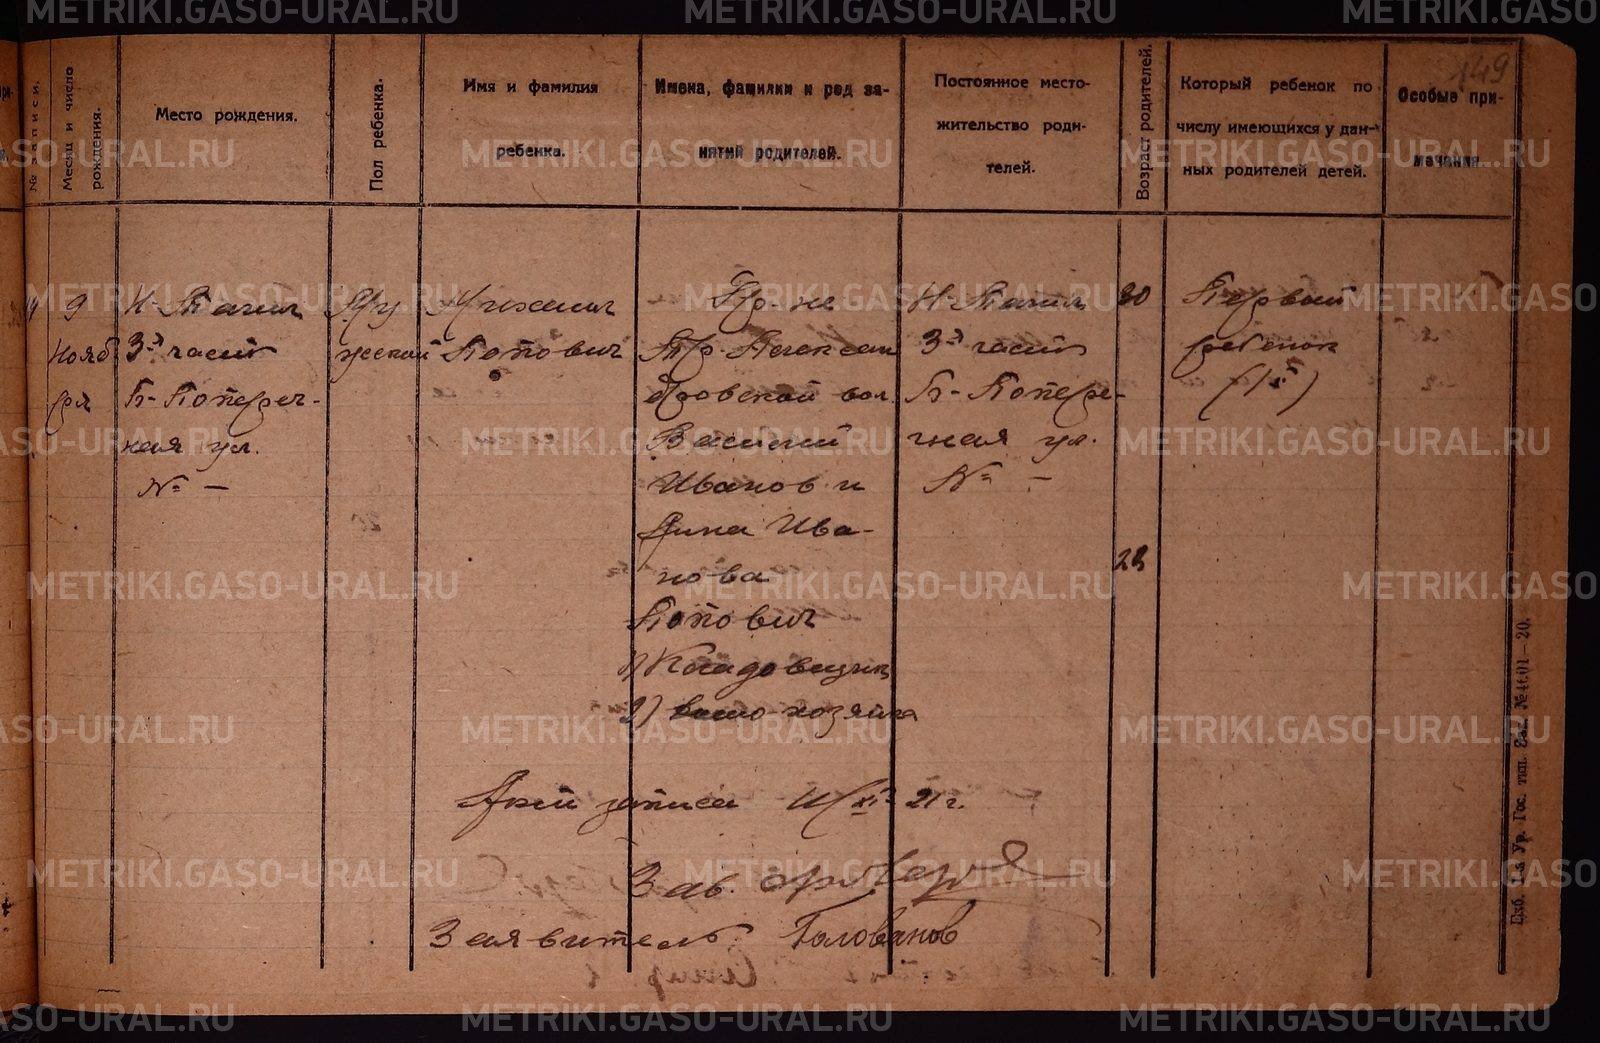 149
№ записи.
Месяц и число рождения.
Место рождения.
Пол ребенка.
Имя и фамилия
ребенка.
Имена, фамилии и род за-
нятий родителей.
Постоянное место-
жительство роди-
телей.
Возраст родителей.
Который ребенок по
числу имеющихся у дан-
ных родителей детей.
Особые при-
мечания.
9
Нояб
ря
Н-Тагил
3я часть
Б-Попереч-
ная ул.
№ —
Му
жеский
Михаил
Попович
Гр-не
Александровской вол.
Василий
Иванов и
Анна Ива-
нова
Попович
1) Кладовщик
2) домо-хозяйка
Н-Тагил
3я часть
Б-Попере-
чная ул.
№ —
30
28
Первый
ребенок
(1й)
День записи 11/XI 21 г.
Зав.
Заявитель: Голованов
Гос. тип. Зак. № 4601—20.
METRIKI.GASO-URAL.RU